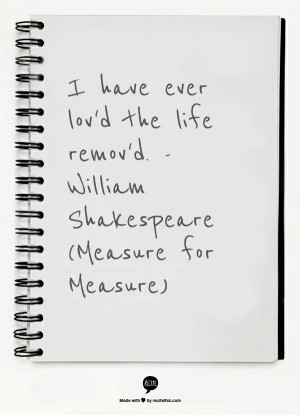 I have ever
lov'd the life
remov'd. -
William
Shakespeare
(Measure for
Measure)
Made with ♥ by recitethis.com